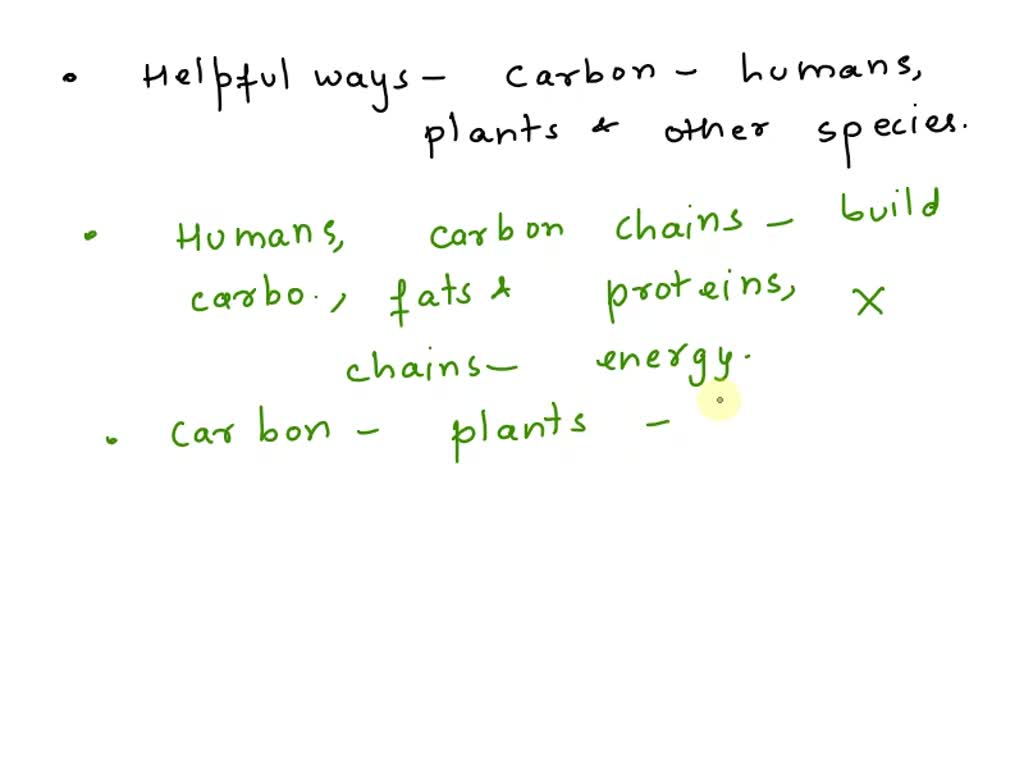 • Helpful ways – carbon – humans,
plants & other species.
• Humans, carbon chains – build
carbo., fats & proteins, X
chains – energy.
• carbon – plants –